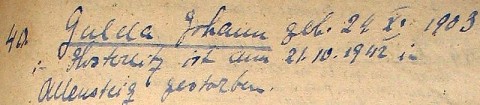 40. Gulda Johann geb. 24. X. 1903
in ist am 21.10.1942 in
Allensteig gestorben.